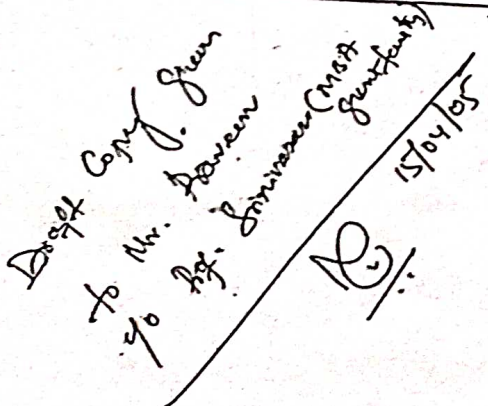 Draft Copy given
to Mr. Praveen
c/o Prof. Srinivasan (MBA
guest faculty)
15/04/05